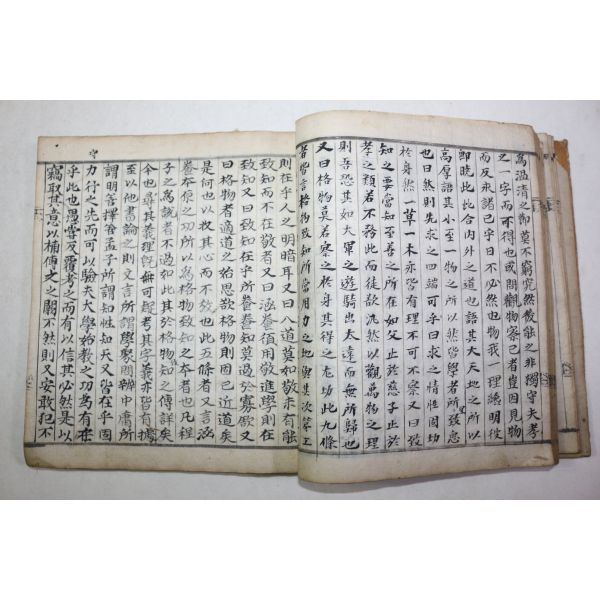 為溫凊之節莫不窮究然後能之非獨守夫孝
之一字而可得也或問觀物察己者豈因見物
而反求諸己乎曰不必然也物我一理纔明彼
即曉此此合內外之道也語其大天地之所以
高厚語其小至一物之所以然皆學者所致思
也曰然則先求之四端可乎曰求之情性固切
於身然一草一木亦皆有理不可不察又曰致
知之要當知至善之所在如父止於慈子止於
孝之類若不務此而徒欲汎然以觀萬物之理
則吾恐其如大軍之遊騎出太遠而無所歸也
又曰格物莫若察之於身其得之尤切此九條
者皆言格物致知所當用力之地與其次第工
則在乎人之明暗耳又曰入道莫如敬未有能
致知而不在敬者又曰涵養須用敬進學則在
致知又曰致知在乎所養養知莫過於寡欲又
曰格物者適道之始思欲格物則固已近道矣
是何也以收其心而不放也此五條者又言涵
養本原之功所以為格物致知之本者也凡程
子之為說者不過如此其於格物知之傳詳矣
今也尋其義理旣無可疑考其字義亦皆有據
至以他書論之則文言所謂學聚問辨中庸所
謂明善擇善孟子所謂知性知天又皆在乎固
守力行之先而可以驗夫大學始教之功為有在
乎此也愚嘗反覆考之而有以信其必然是以
竊取其意以補傳文之闕不然則又安敢犯不